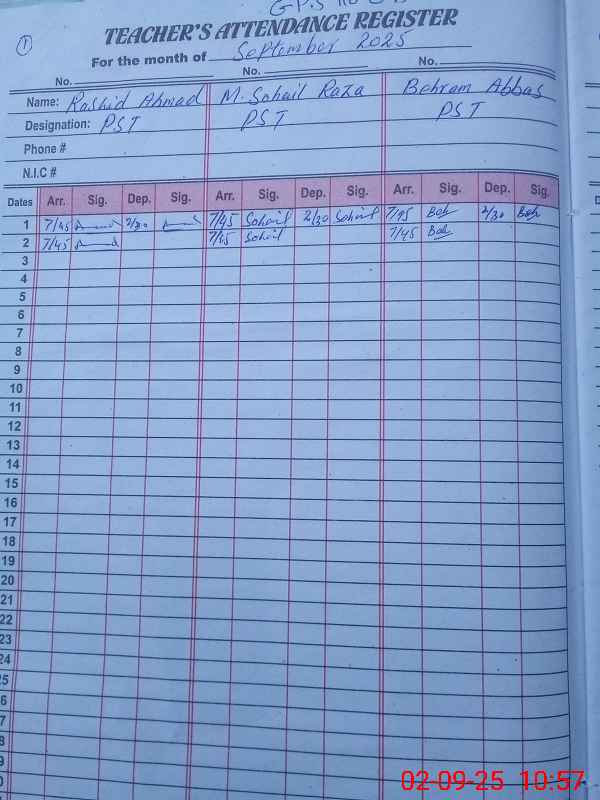 ①
TEACHER'S ATTENDANCE REGISTER
For the month of September 2025
No. No. No.
Name: Rashid Ahmad M. Sohail Raza Behram Abbas
Designation: PST PST PST
Phone #
N.I.C #
Dates Arr. Sig. Dep. Sig. Arr. Sig. Dep. Sig. Arr. Sig. Dep. Sig.
1 7/45 2/30 7/45 Sohail 2/30 Sohail 7/45 Beh 2/30 Beh
2 7/45 7/45 Sohail 7/45 Beh
3
4
5
6
7
8
9
10
11
12
13
14
15
16
17
18
19
20
21
22
23
24
02-09-25 10:57